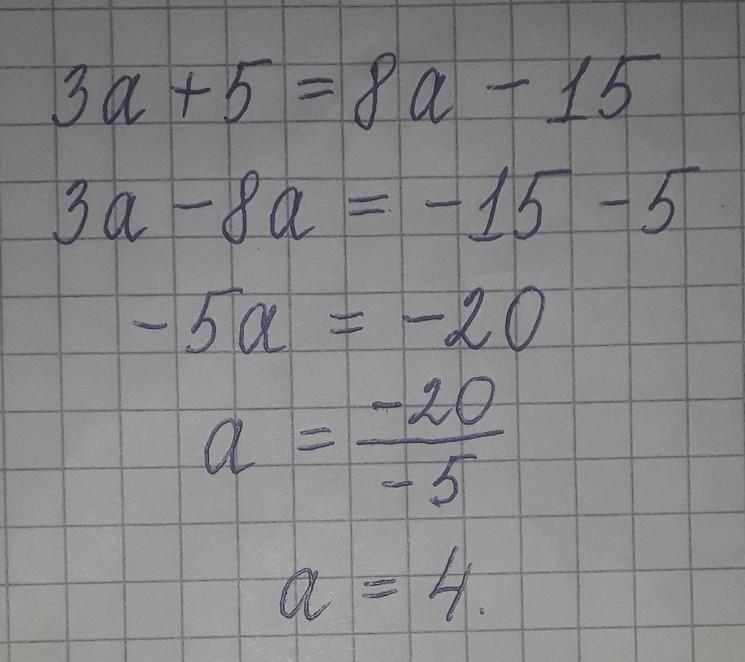 3a + 5 = 8a - 15
3a - 8a = -15 - 5
-5a = -20
a = -20/-5
a = 4.